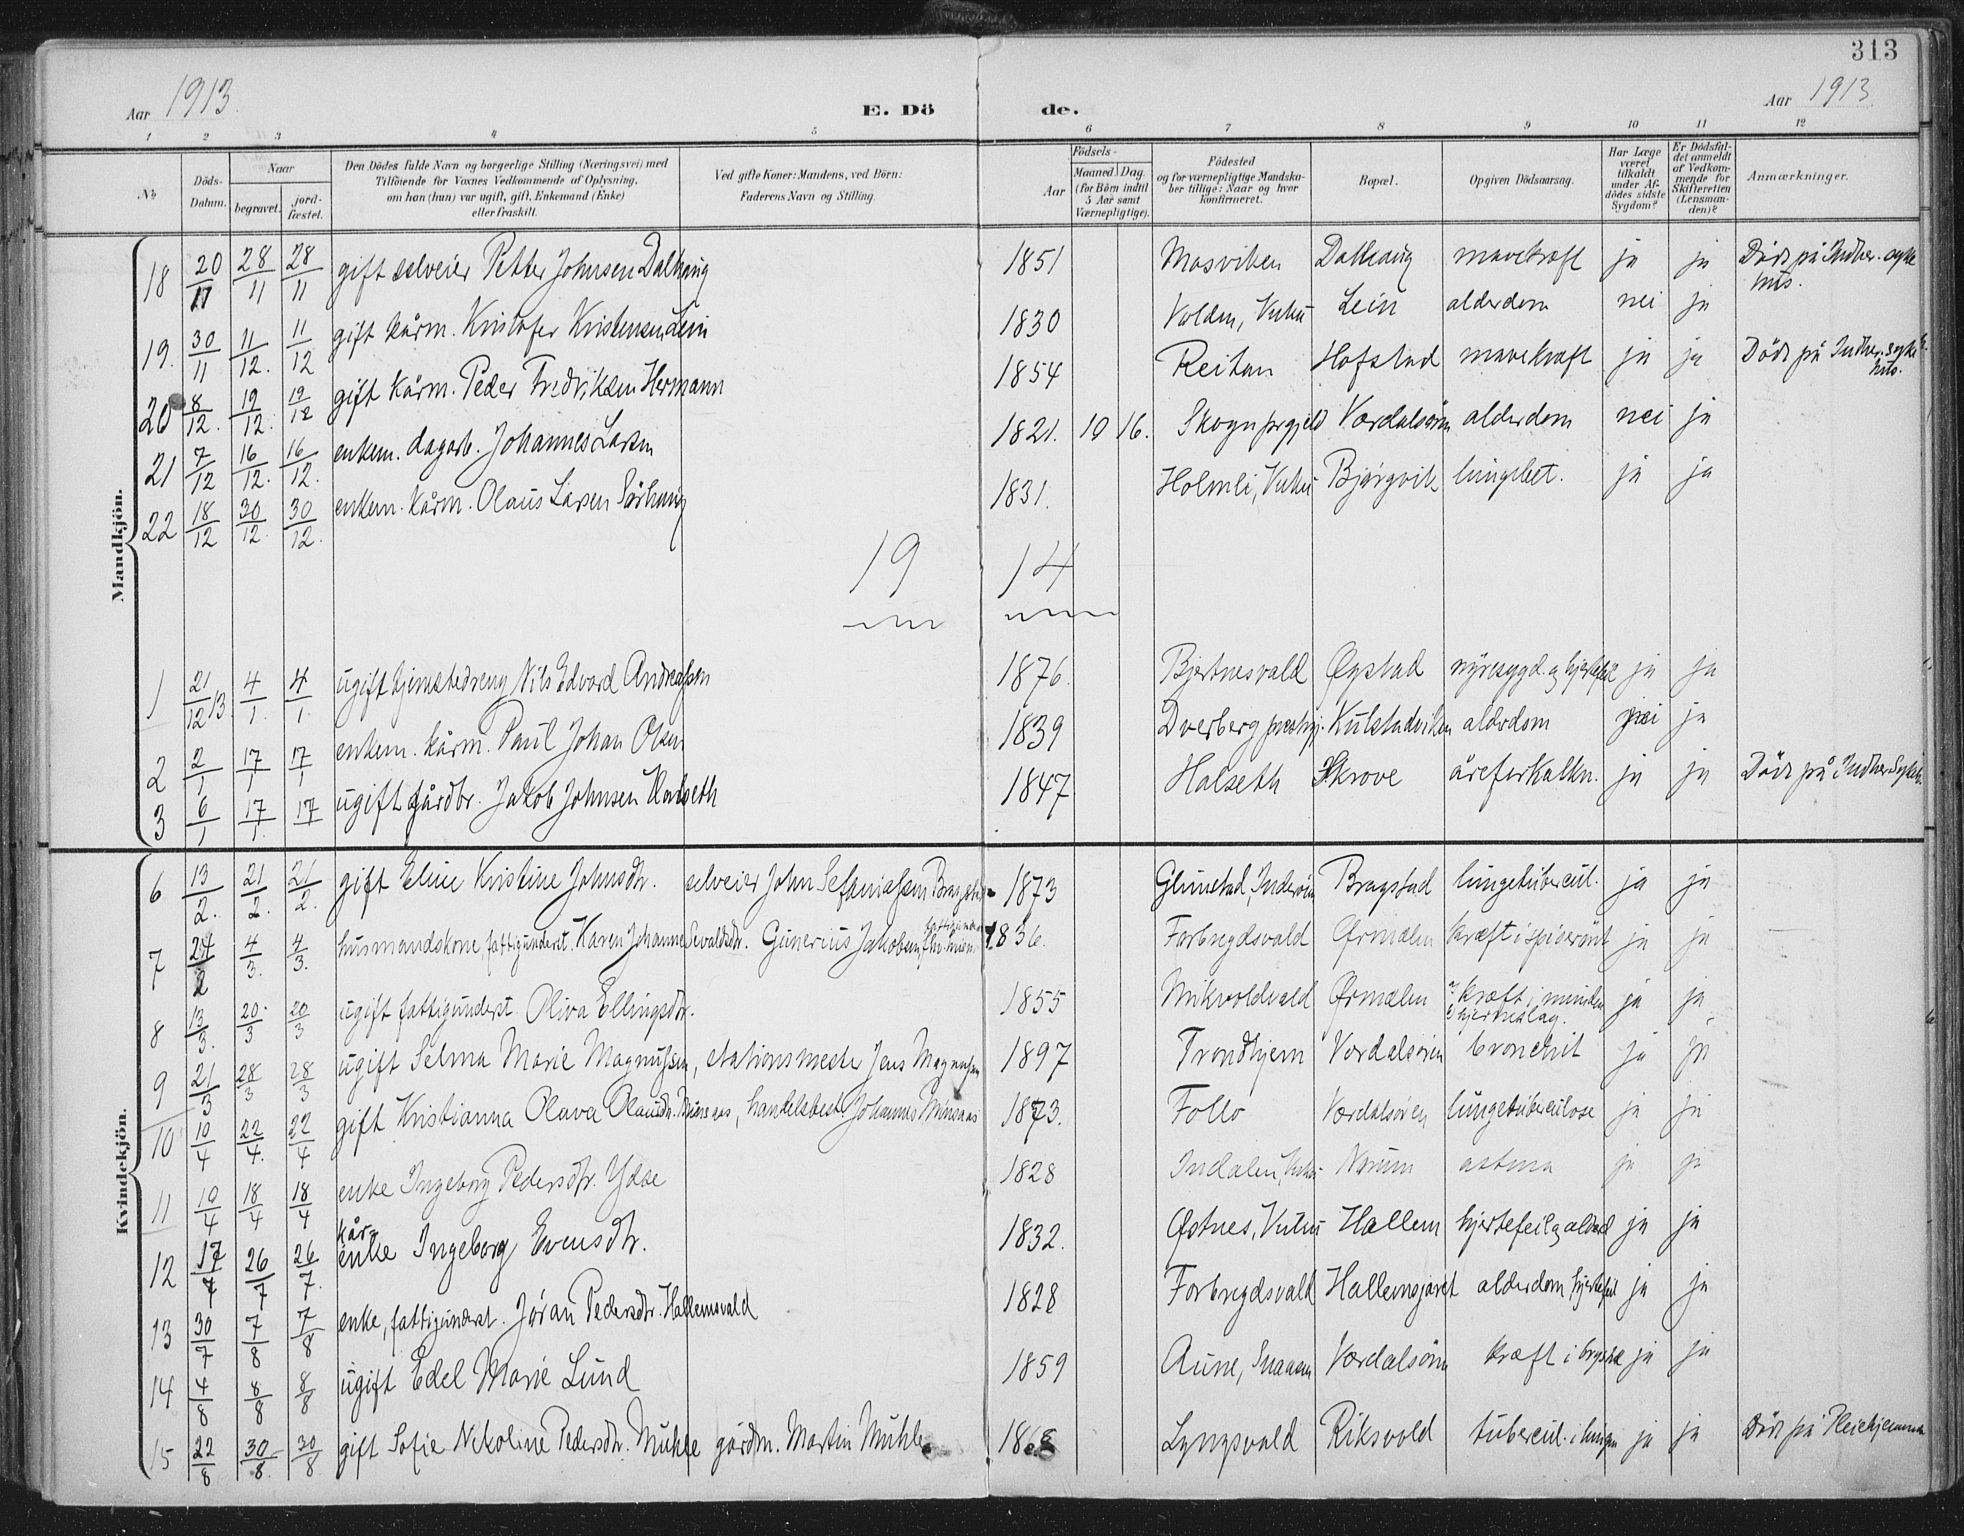 313
Aar 1913. E. Dö de. Aar 1913
1 2 3 4 5 6 7 8 9 10 11 12
No Döds-Datum. Naar begravet. jord-fæstet. Den Dödes fulde Navn og borgerlige Stilling (Næringsvei) med Tilföiende for Voxnes Vedkommende af Oplysning, om han (hun) var ugift, gift, Enkemand (Enke) eller fraskilt. Ved gifte Koner: Mandens, ved Börn: Faderens Navn og Stilling. Födsels- Aar Maaned Dag. (for Börn indtil 5 Aar samt Værnepligtige). Födested og for værnepligtige Mandskaber tillige: Naar og hvor konfirmeret. Bopæl. Opgiven Dödsaarsag. Har Læge været tilkaldt under Afdödes sidste Sygdom? Er Dödsfaldet anmeldt af Vedkommende for Skifteretten (Lensmanden)? Anmærkninger.
Mandkjön.
18 20/11 28/11 28/11 gift selveier Petter Johnsen Dalhaug 1851 Mosviken Dalhaug mavekræft ja ja Död på Indher. syke hus.
19. 30/11 11/12. 11/12 gift kårm. Kristofer Kristensen Lein 1830 Volden, Vuku Lein alderdom nei ja
20 8/12. 19/12. 19/12 gift kårm. Peder Fredriksen Hermann 1854 Reitan Hofstad mavekræft ja ja Död på Indher. syke hus.
21 7/12 16/12. 16/12. enkem. dagarb. Johannes Larsen 1821. 10 16. Skogn prgjeld Værdalsøren alderdom nei ja
22 18/12 30/12. 30/12. enkem. kårm. Olaus Larsen Sörhaug 1831. Holmli, Vuku Bjørgvik lungebet. ja ja
19 14
1 21/12 13 4/1. 4/1. ugift hjemstedreng Nils Edvard Andreassen 1876. Bjertnesvald Øgstad nyresygd. og hjertefeil ja ja
2 2/1 17/1 17/1 enkem. kårm. Paul Johan Olsen 1839 Dverberg prestgj. Kulstadviken aldrdom nei ja
3 6/1 17/1. 17 ugift gårdbr. Jakob Johnsen Halseth 1847 Halseth Skrove åreforkalkn. ja ja Död på Indher Sykeh.
Kvindekjön.
6 13/2. 21/2. 21/2. gift Eline Kristine Johnsdtr. selveier John Sefaniassen Bragstad 1873 Glimstad, Inderøen Bragstad lungetubercul. ja ja
7 24/2 4/3. 4/3. husmandskone, fattigunderst. Karen Johanne Sevaldsdtr. Gunerius Jakobsen 1836. Forbregdsvald Ørmælen kræft i spiserör ja ja
8 13/3. 20/3 20/3 ugift fattigunderst. Oliva Ellingsdtr. 1855 Mikvoldvald Ørmælen kræft i hjerneslag. ja ja
9 21/3 28/3 28/3 ugift Selma Marie Magnussen, stationsmester Jens Magnussen 1897 Trondhjem Værdalsøren bronchit ja ja
10 10/4 22/4. 22/4 gift Kristianna Olava Olausdtr. Minsaas, handelsbest. Johannes Minsaas 1873. Follo Værdalsøren lungetuberculose ja ja
11 10/4 18/4 18/4 enke Ingeborg Pedersdtr. Ydse 1828 Indalen, Vuku Næssum astma ja ja
12 17/7 26/7 26/7. kår enke Ingeborg Evensdtr. 1832. Østnes, Vuku Hallem hjertefeil og alderd ja ja
13 30/7 7/8 7/8 enke, fattigunderst. Jøran Pedersdtr. Hallemsvald 1828 Forbregdsvald Hallemsjaret alderdom hjertefeil ja ja
14 4/8 8/8 8/8 ugift Edel Marie Lund 1859 Aune, Snaasen Værdalsøren kræft i brystet ja ja
15 22/8 30/8. 30/8 gift Sofie Nikoline Pedersdtr. Muhle gårdm. Martin Muhle 1868 Lyngsvald Riksvold tubercul. i lungen ja ja Död på Pleiehjemmet